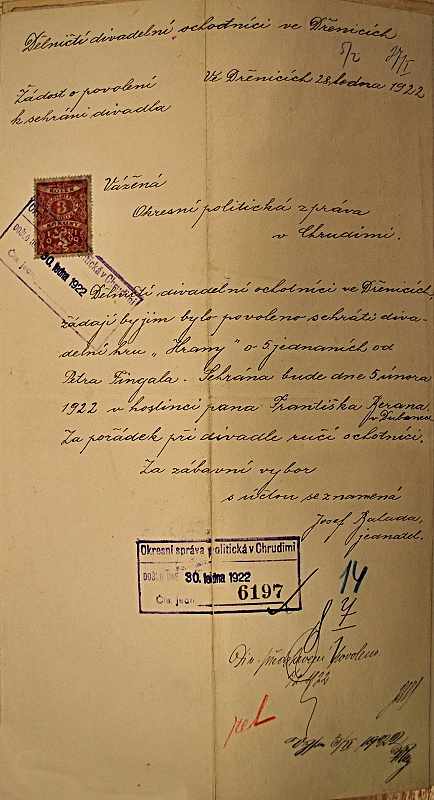 Dělničtí divadelní ochotníci ve Dřenicích
5/2 27/I
Ve Dřenicích 28. ledna 1922
Žádost o povolení
k sehrání divadla
Vážená
Okresní politická zpráva
v Chrudimi.
politická v Chrudimi
DOŠLO DNE 30. ledna 1922
Čís. jedn.
Dělničtí divadelní ochotníci ve Dřenicích,
žádají by jim bylo povoleno sehráti diva-
delní hru „Hrany" o 5 jednaních od
Petra Fingala. Sehrána bude dne 5 února
1922 v hostinci pana Františka Berana
v Dubanech
Za pořádek při divadle ručí ochotníci.
Za zábavní vybor
s úctou se znamená
Josef Balada,
jednatel.
Okresní správa politická v Chrudimi
DOŠLO DNE 30. ledna 1922
Čís. jedn. 6197
14
představení Povoleno
ref
1922